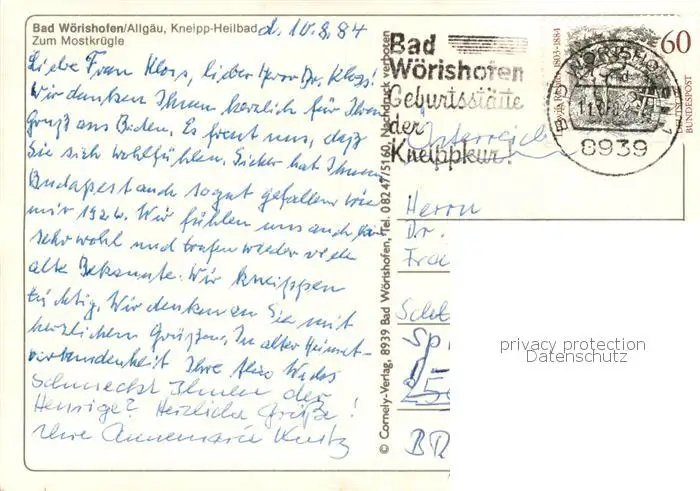 Bad Wörishofen/Allgäu, Kneipp-Heilbad
Zum Mostkrügle
d. 10.8.84
Liebe Frau Kloss, lieber Herr Dr. Kloss!
Wir danken Ihnen herzlich für Ihren
Gruß aus Baden. Es freut uns, daß
Sie sich wohlfühlen. Sicher hat Ihnen
Budapest auch so gut gefallen wie
mir 1926. Wir fühlen uns auch hier
sehr wohl und trafen wieder viele
alte Bekannte. Wir kneippen
tüchtig. Wir denken an Sie mit
herzlichen Grüßen. In alter Heimat-
verbundenheit Ihre
Schmeckt Ihnen der
Heurige? Herzliche Grüße!
Ihre Annemarie
© Cornely-Verlag, 8939 Bad Wörishofen, Tel. 08247/5160, Nachdruck verboten
Bad
Wörishofen
Geburtsstätte
der
Kneippkur!
Österreich
1803-1884
60
DEUTSCHE
BUNDESPOST
8939
Herrn
Dr.
privacy protection
Datenschutz